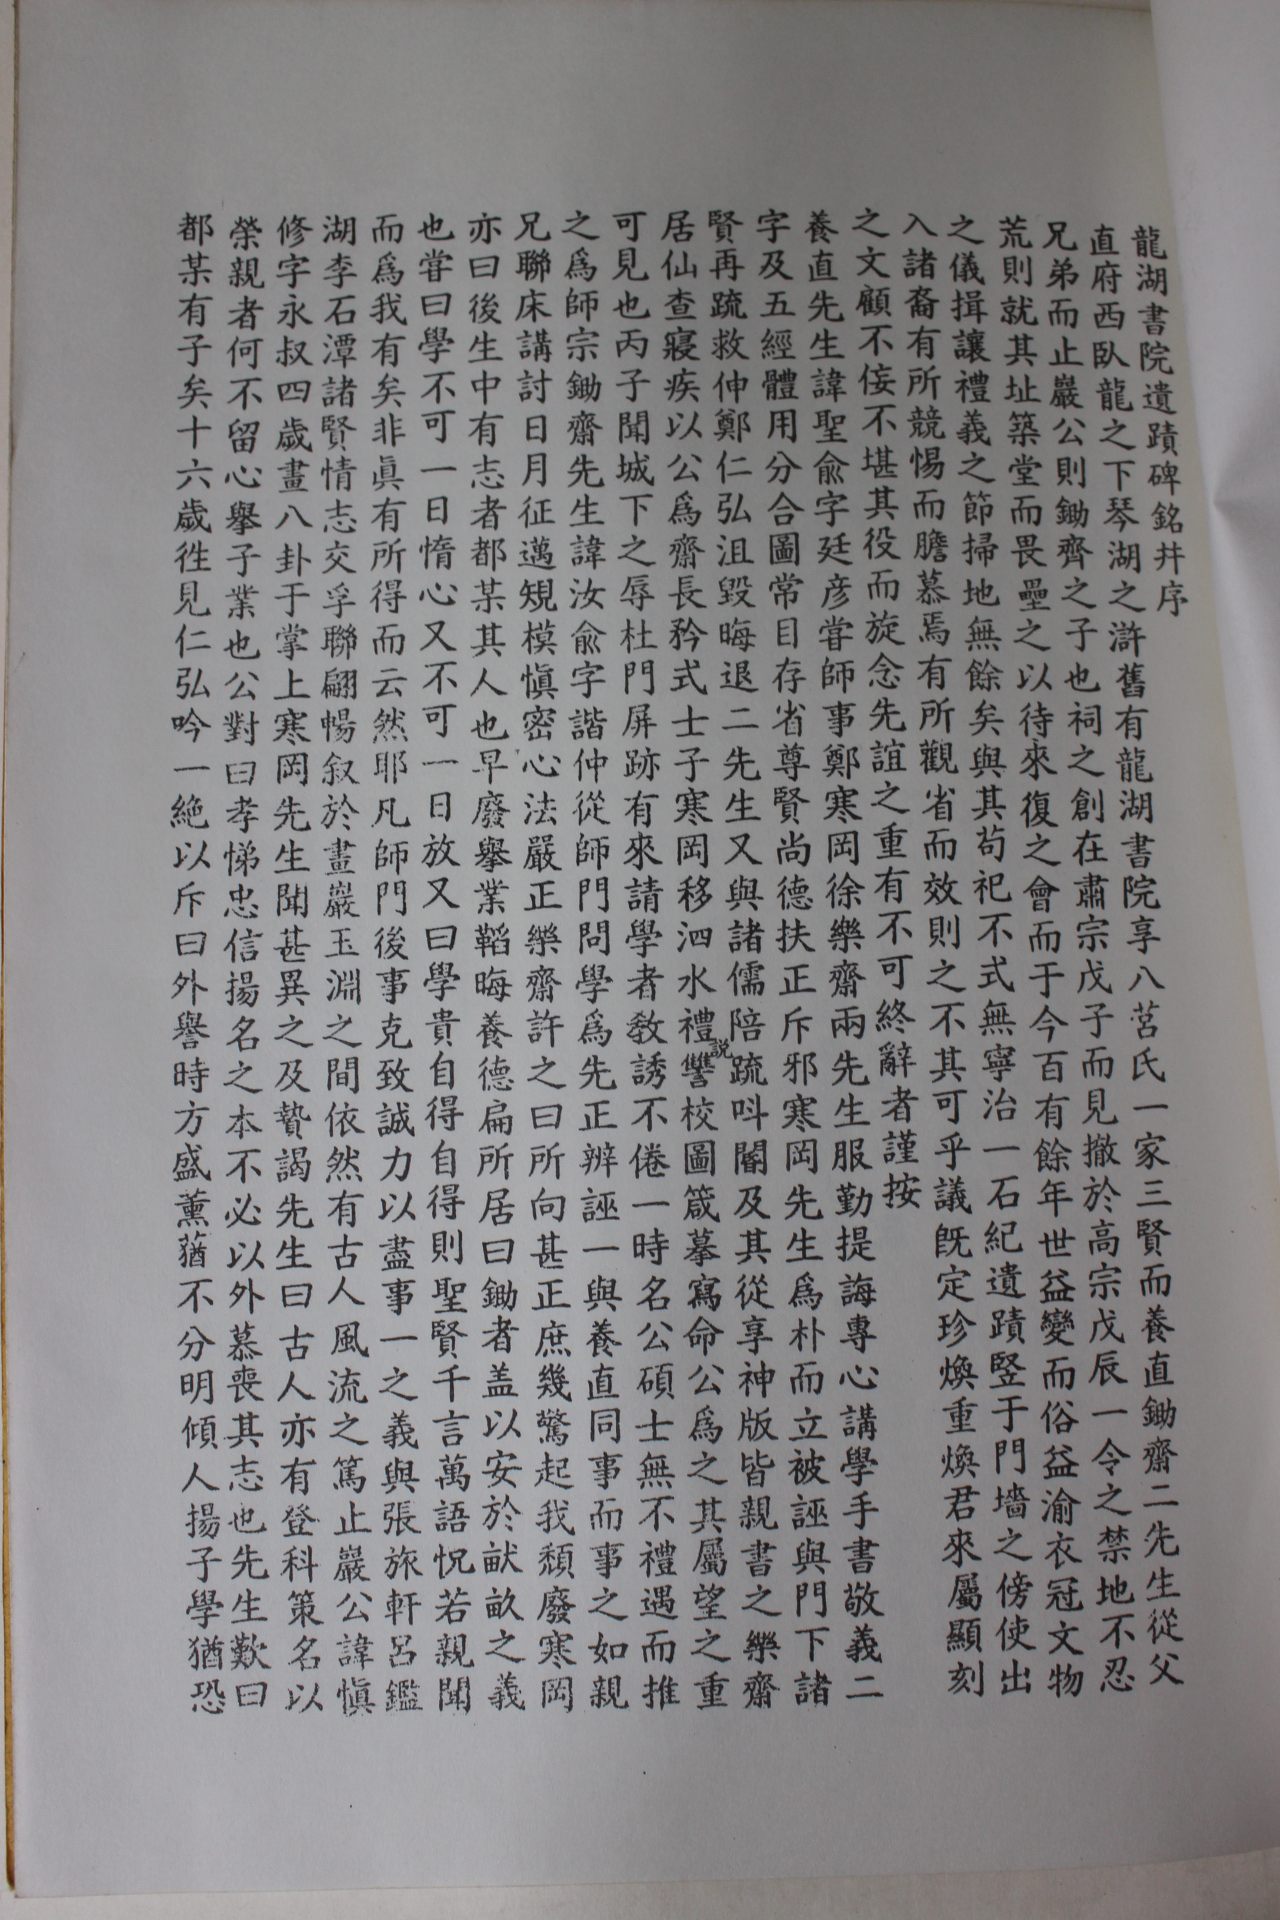 龍湖書院遺蹟碑銘幷序
直府西臥龍之下琴湖之滸舊有龍湖書院享八莒氏一家三賢而養直鋤齋二先生從父
兄弟而止巖公則鋤齋之子也祠之創在肅宗戊子而見撤於高宗戊辰一令之禁地不忍
荒則就其址築堂而畏壘之以待來復之會而于今百有餘年世益變而俗益渝衣冠文物
之儀揖讓禮義之節掃地無餘矣與其苟祀不式無寧治一石紀遺蹟竪于門墻之傍使出
入諸裔有所競惕而膽慕焉有所觀省而效則之不其可乎議旣定珍煥重煥君來屬顯刻
之文顧不侫不堪其役而旋念先誼之重有不可終辭者謹按
養直先生諱聖兪字廷彦甞師事鄭寒岡徐樂齋兩先生服勤提誨專心講學手書敬義二
字及五經體用分合圖常目存省尊賢尚德扶正斥邪寒岡先生爲朴而立被誣與門下諸
賢再疏救伸鄭仁弘沮毀晦退二先生又與諸儒陪疏呌闔及其從享神版皆親書之樂齋
居仙查寢疾以公爲齋長矜式士子寒岡移泗水禮說讐校圖箴摹寫命公爲之其屬望之重
可見也丙子聞城下之辱杜門屏跡有來請學者敎誘不倦一時名公碩士無不禮遇而推
之爲師宗鋤齋先生諱汝兪字諧仲從師門問學爲先正辨誣一與養直同事而事之如親
兄聯床講討日月征邁䂓模愼密心法嚴正樂齋許之曰所向甚正庶幾驚起我頹廢寒岡
亦曰後生中有志者都某其人也早廢擧業韜晦養德扁所居曰鋤者盖以安於畎畝之義
也甞曰學不可一日惰心又不可一日放又曰學貴自得自得則聖賢千言萬語怳若親聞
而爲我有矣非眞有所得而云然耶凡師門後事克致誠力以盡事一之義與張旅軒呂鑑
湖李石潭諸賢情志交孚聯翩暢叙於畫巖玉淵之間依然有古人風流之篤止巖公諱愼
修字永叔四歲畫八卦于掌上寒岡先生聞甚異之及贄謁先生曰古人亦有登科策名以
榮親者何不留心擧子業也公對曰孝悌忠信揚名之本不必以外慕喪其志也先生歎曰
都某有子矣十六歲徃見仁弘吟一絶以斥曰外譽時方盛薰蕕不分明傾人揚子學猶恐